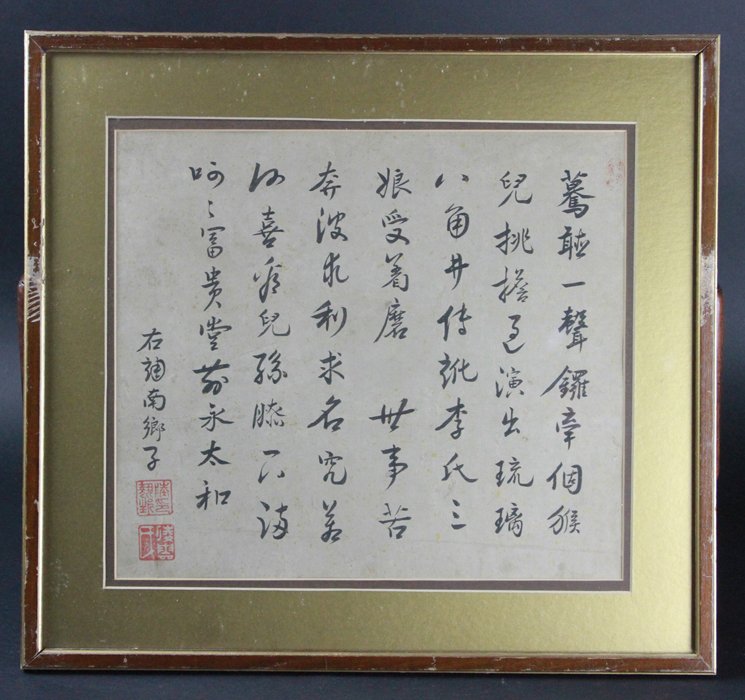 驀聽一聲鑼牽個猴
兒挑擔過演出琉璃
八角井傳訛李氏三
娘受着磨 世事苦
奔波求利求名究若
何喜看兒孫膝下滿
呵〻富貴堂前永太和
右調南鄉子